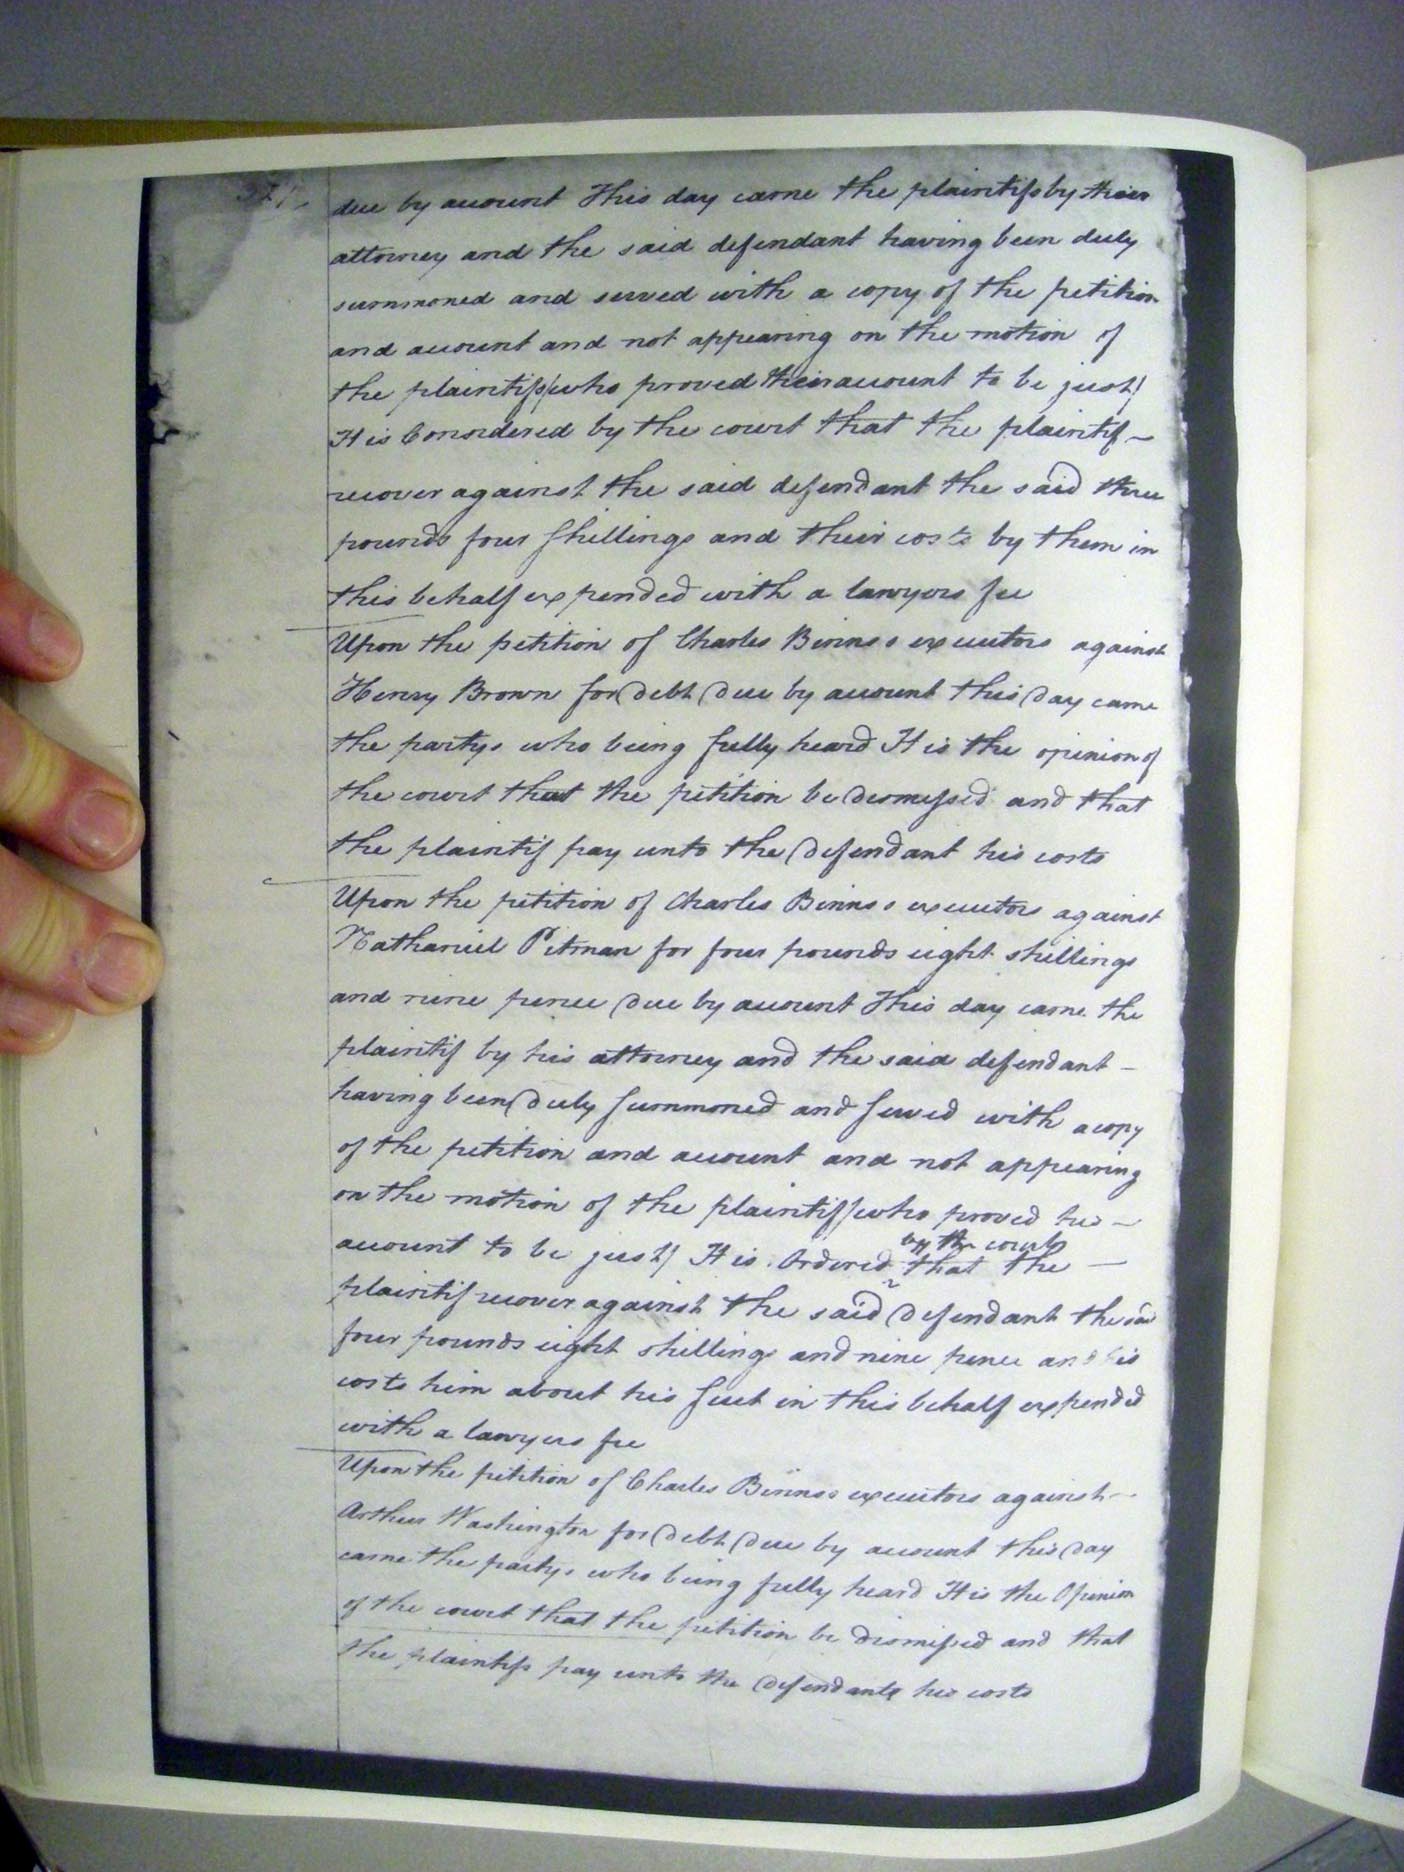 due by account This day came the plaintifs by their
attorney and the said defendant having been duly
summoned and served with a copy of the petition
and account and not appearing on the motion of
the plaintifs (who proved their account to be just)
It is Considered by the court that the plaintif –
recover against the said defendant the said three
pounds four shillings and their costs by them in
this behalf expended with a lawyers fee
Upon the petition of Charles Binns's executors against
Henry Brown for debt due by account this day came
the partys who being fully heard It is the opinion of
the court that the petition be dismissed and that
the plaintif pay unto the defendant his costs
Upon the petition of Charles Binns's executors against
Nathaniel Pitman for four pounds eight shillings
and nine pence due by account This day came the
plaintif by his attorney and the said defendant –
having been duly summoned and served with a copy
of the petition and account and not appearing
on the motion of the plaintif (who proved his –
by the court
account to be just) It is Ordered ^ that the –
plaintif recover against the said defendant the said
four pounds eight shillings and nine pence and his
costs him about his suit in this behalf expended
with a lawyers fee
Upon the petition of Charles Binns's executors against –
Arthur Washington for debt due by account this day
came the partys who being fully heard It is the Opinion
of the court that the petition be dismissed and that
the plaintifs pay unto the defendant his costs